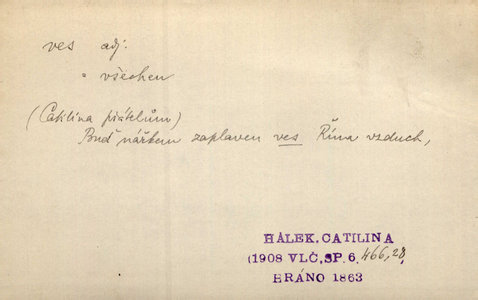 ves adj.
° všechen
(Catilina přátelům)
Buď nářkem zaplaven ves Říma vzduch,
HÁLEK, CATILINA
(1908 VLČ, SP. 6, 466,28,
HRÁNO 1863